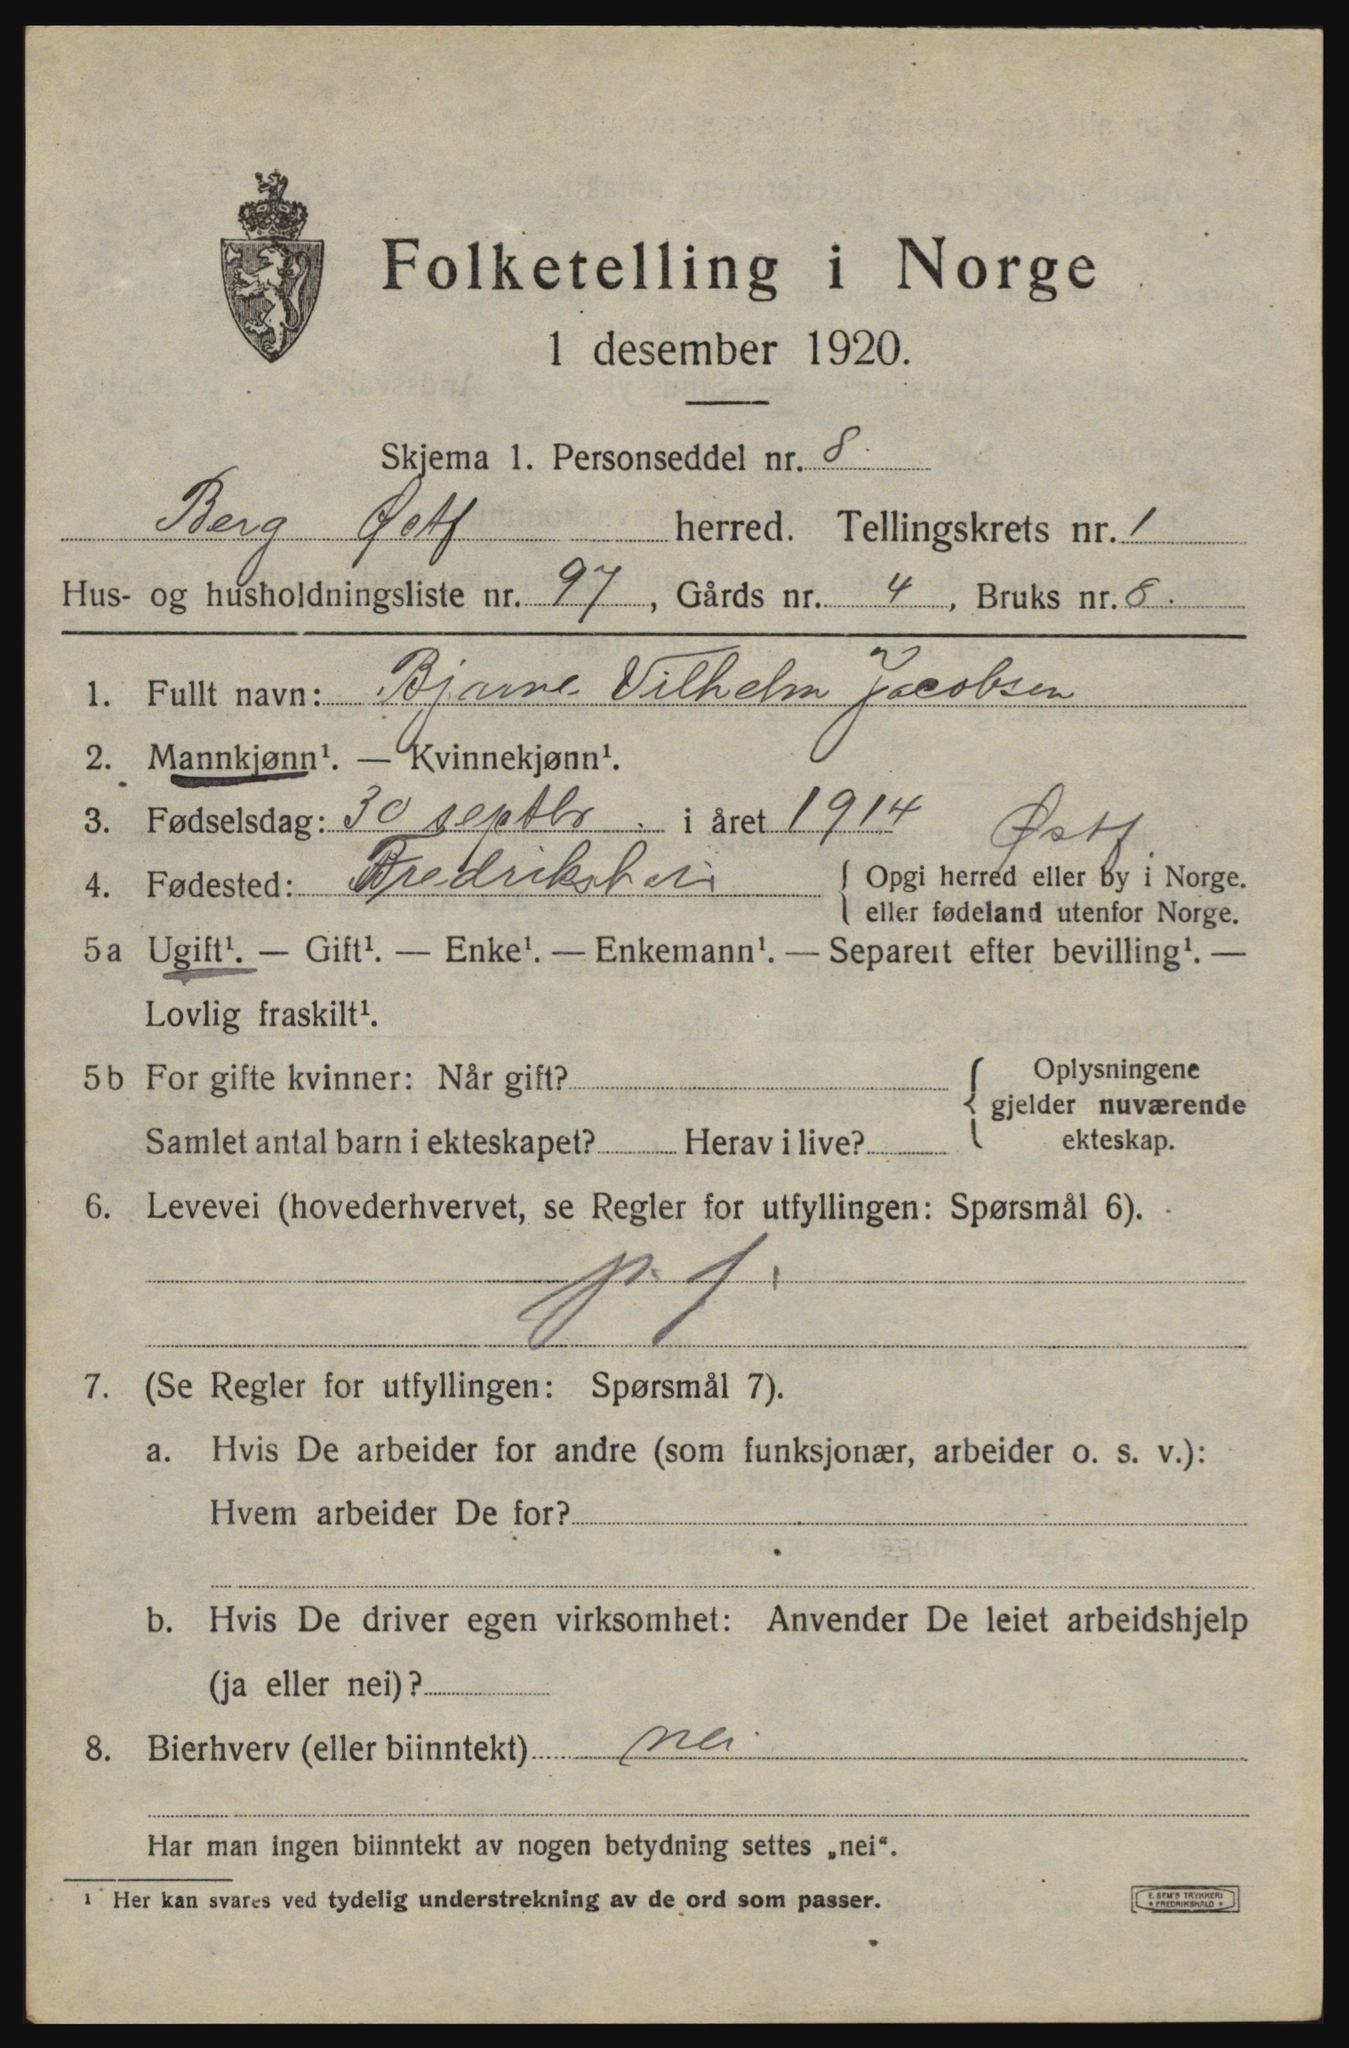 Folketelling i Norge
1 desember 1920.
Skjema 1. Personseddel nr. 8.
Berg Østf herred. Tellingskrets nr. 1
Hus- og husholdningsliste nr. 97, Gårds nr. 4, Bruks nr. 8.
1. Fullt navn: Bjarne Vilhelm Jacobsen
2. Mannkjønn¹. — Kvinnekjønn¹.
3. Fødselsdag: 30 septbr. i året 1914
Østf.
4. Fødested: { Opgi herred eller by i Norge.
eller fødeland utenfor Norge.
5a Ugift¹. — Gift¹. — Enke¹. — Enkemann¹. — Separert efter bevilling¹. —
Lovlig fraskilt¹.
5b For gifte kvinner: Når gift? { Oplysningene
gjelder nuværende
Samlet antal barn i ekteskapet? Herav i live? ekteskap.
6. Levevei (hovederhvervet, se Regler for utfyllingen: Spørsmål 6).
p. f.
7. (Se Regler for utfyllingen: Spørsmål 7).
a. Hvis De arbeider for andre (som funksjonær, arbeider o. s. v.):
Hvem arbeider De for?
b. Hvis De driver egen virksomhet: Anvender De leiet arbeidshjelp
(ja eller nei)?
8. Bierhverv (eller biinntekt) nei.
Har man ingen biinntekt av nogen betydning settes „nei“.
¹ Her kan svares ved tydelig understrekning av de ord som passer.
E. SEM'S TRYKKERI
* FREDRIKSHALD *